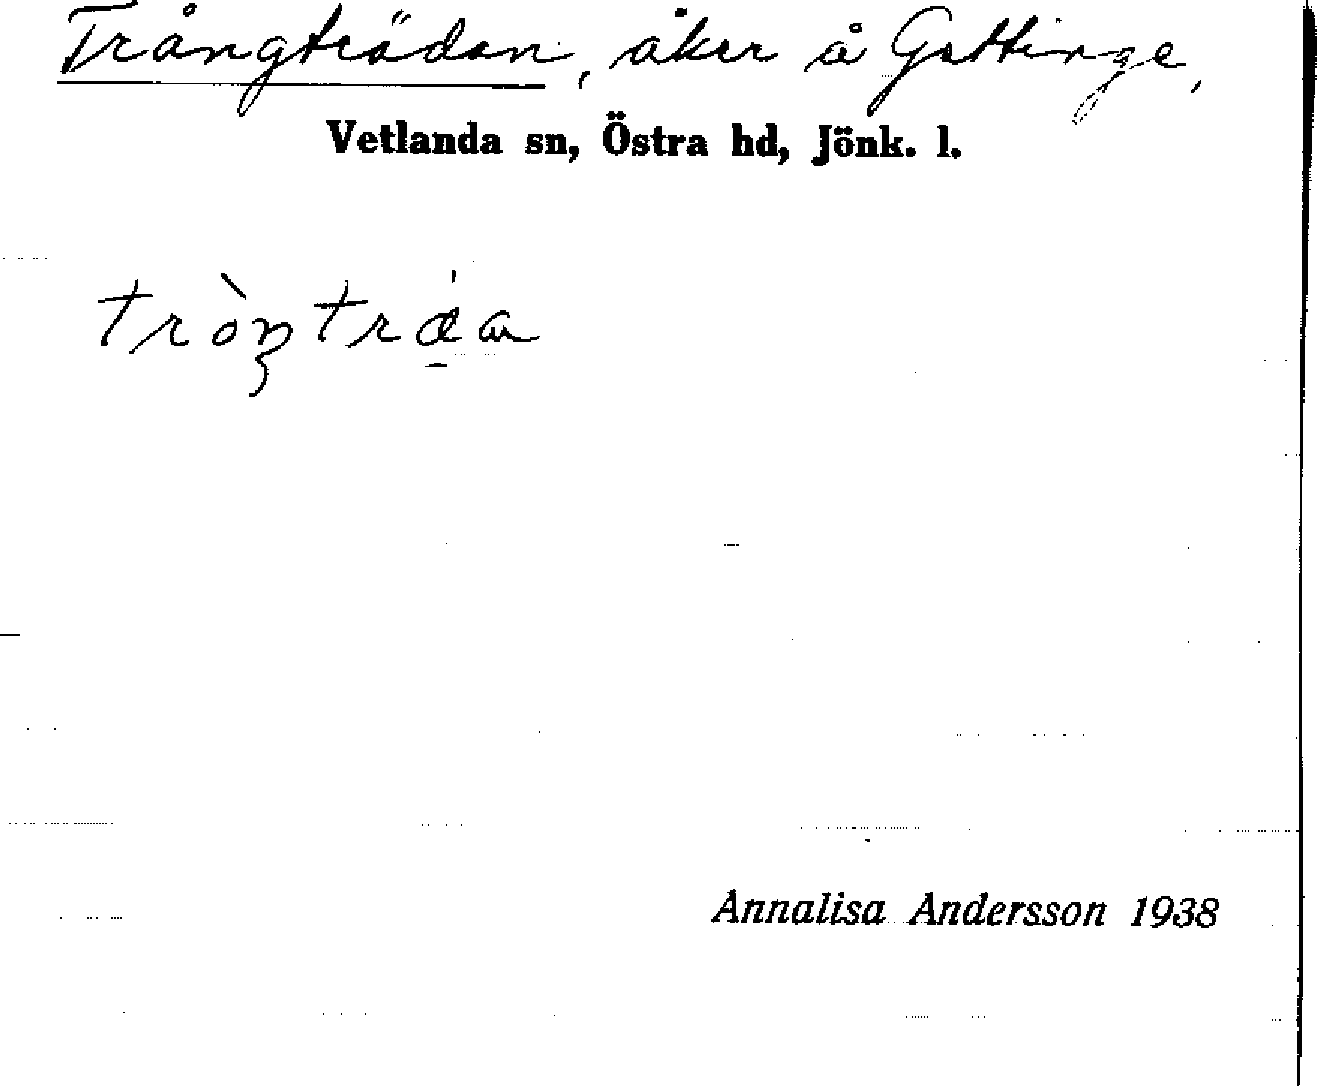 Trångträdan, åker å Gättinge,
Vetlanda sn, Östra hd, Jönk. l.
Annalisa Andersson 1938